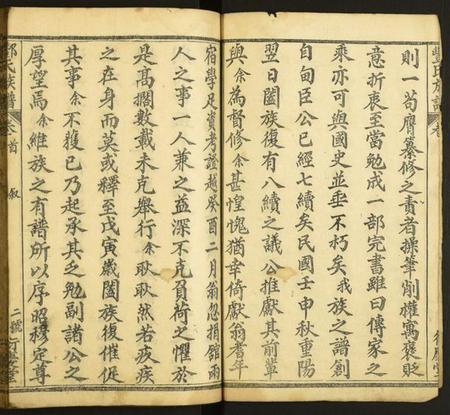 則一苟膺纂修之責者操筆削權寓褒貶
意折衷至當勉成一部完書雖曰傳家之
乘亦可與國史並垂不朽矣我族之譜創
自甸臣公已經七續矣民國壬申秋重陽
翌日闔族復有八續之議公推獻其前輩
與余為督修余甚惶愧猶幸倚獻翁耆年
宿學足資考證越癸酉二月翁忽捐館兩
人之事一人兼之益深不克負荷之懼於
是髙擱數載未克舉行余耿耿然若疚疾
之在身而莫或釋至戊寅歲闔族復催促
其事余不獲已乃起承其之勉副諸公之
厚望焉余維族之有譜所以序昭穆定尊
氏族譜 卷首 叙 二號